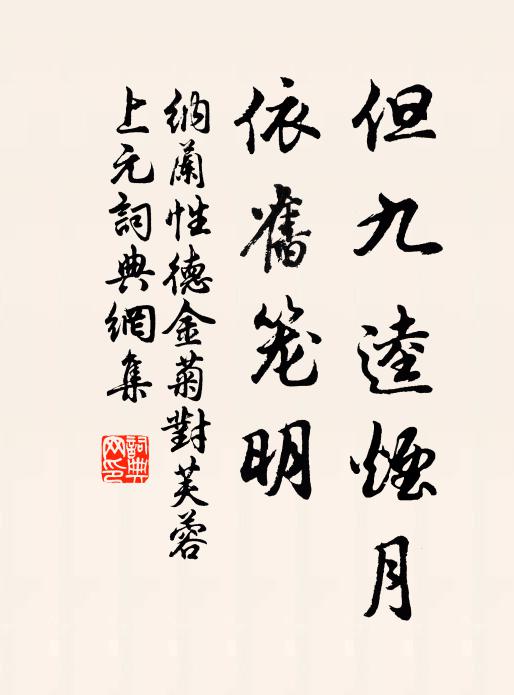 但九逵煙月
依舊笼明
納蘭性德金菊對芙蓉
上元詞典網集
詞典
网印